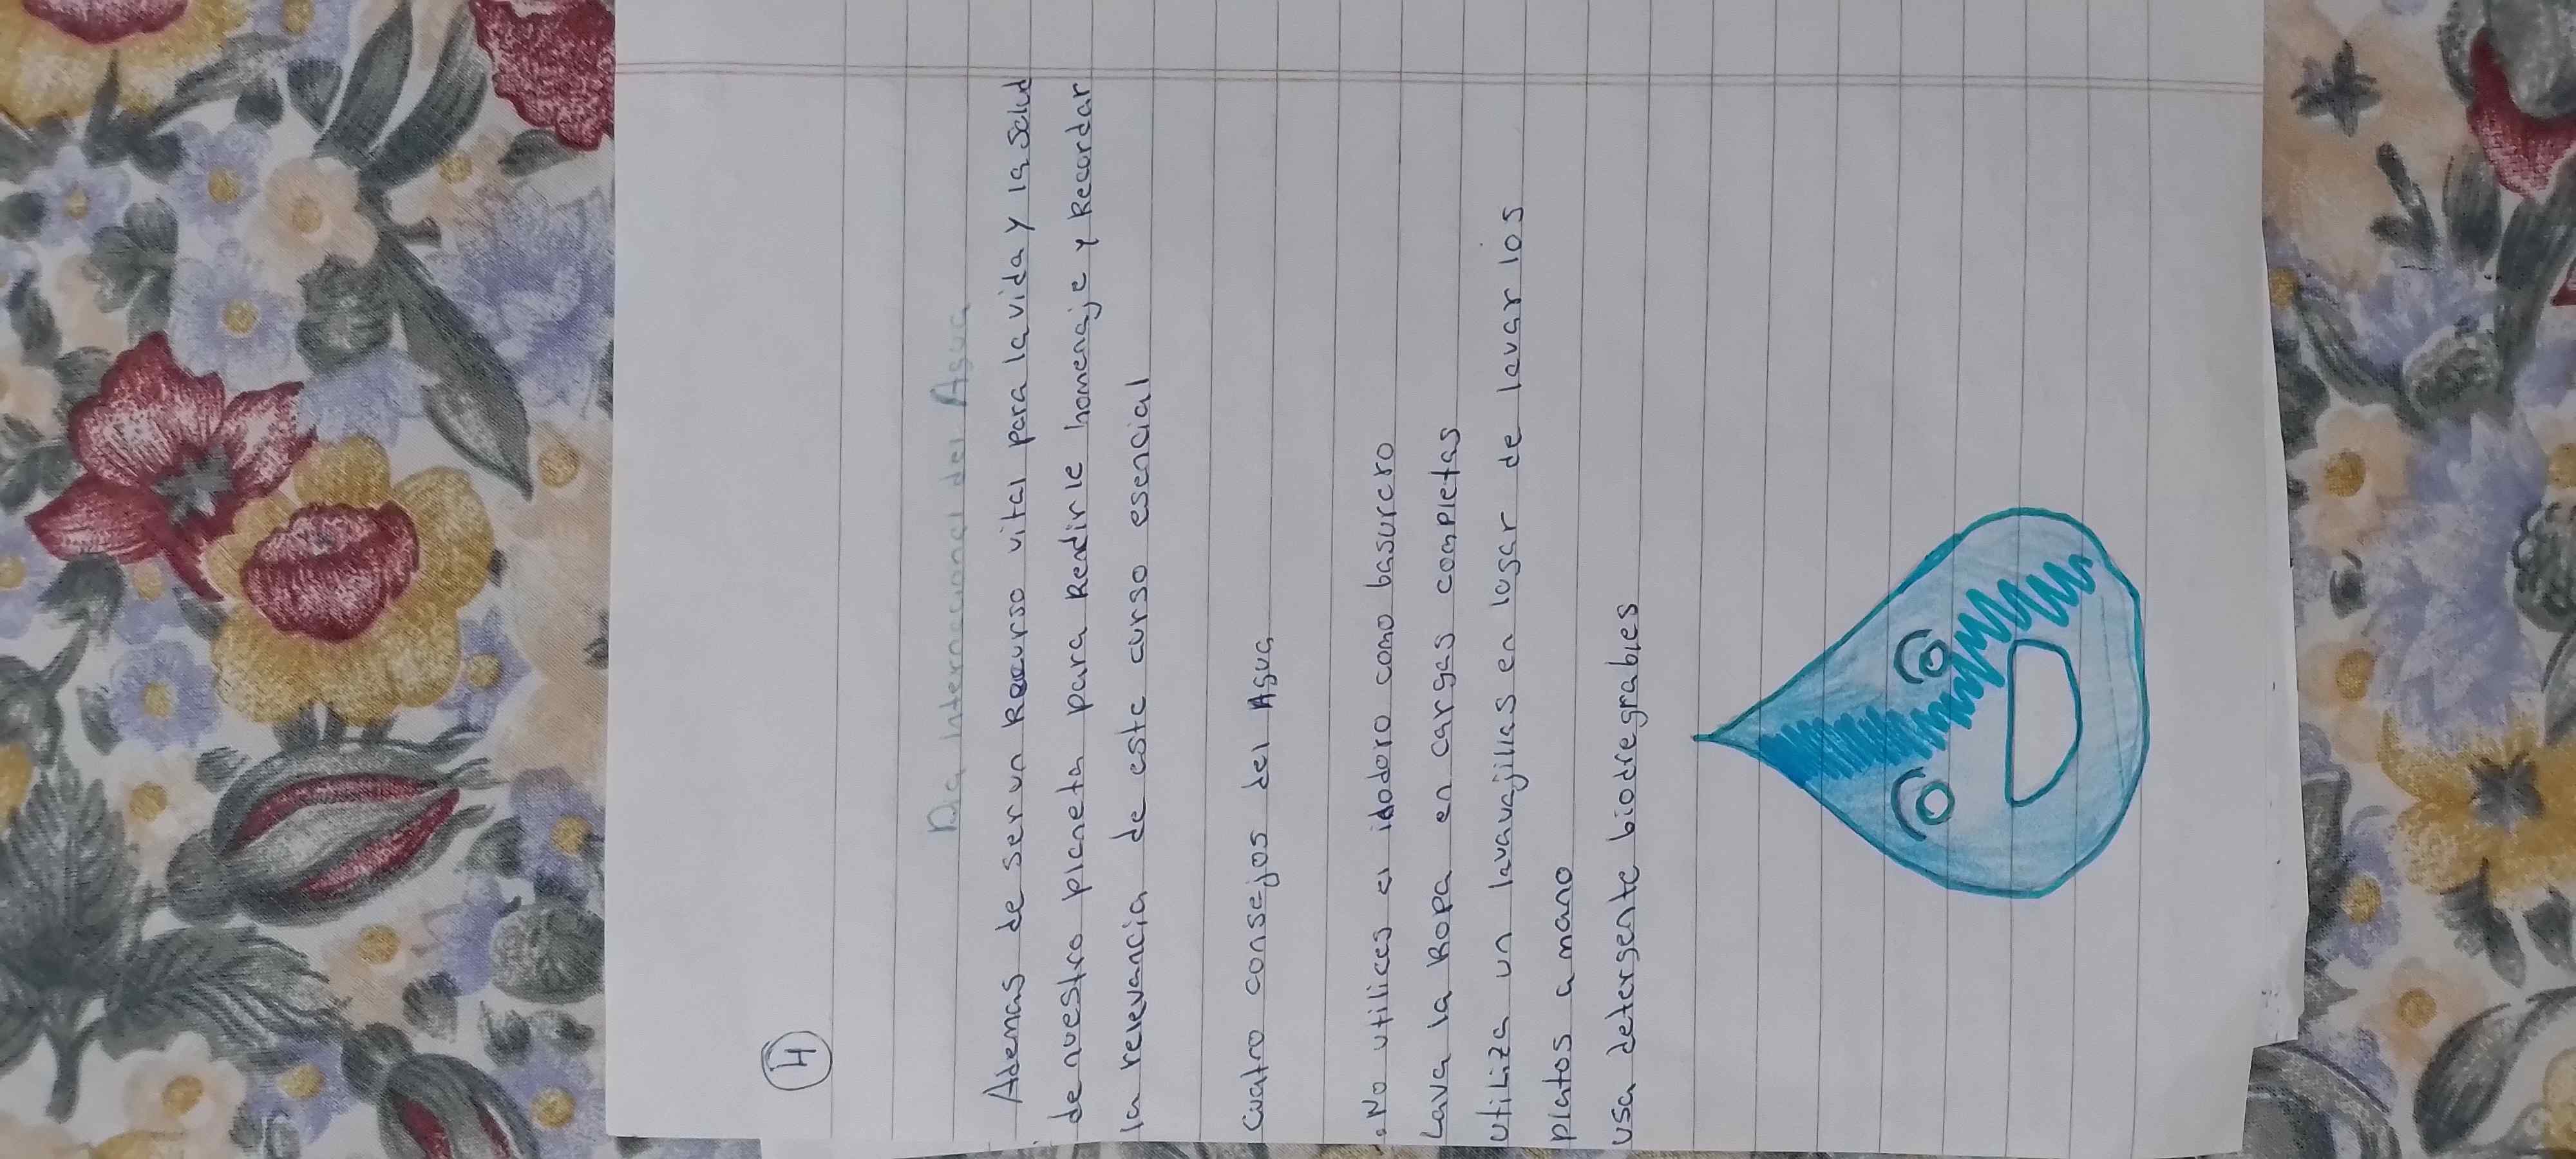 4
Dia Internacional del Agua
Ademas de ser un Recurso vital para la vida y la salud
de nuestro planeta para Rendirle homenaje y Recordar
la relevancia de este curso esencial
Cuatro consejos del Agua
No utilices el idodoro como basurero
Lava la Ropa en cargas completas
Utiliza un lavavajillas en lugar de lavar los
platos a mano
usa detergente biodregrables